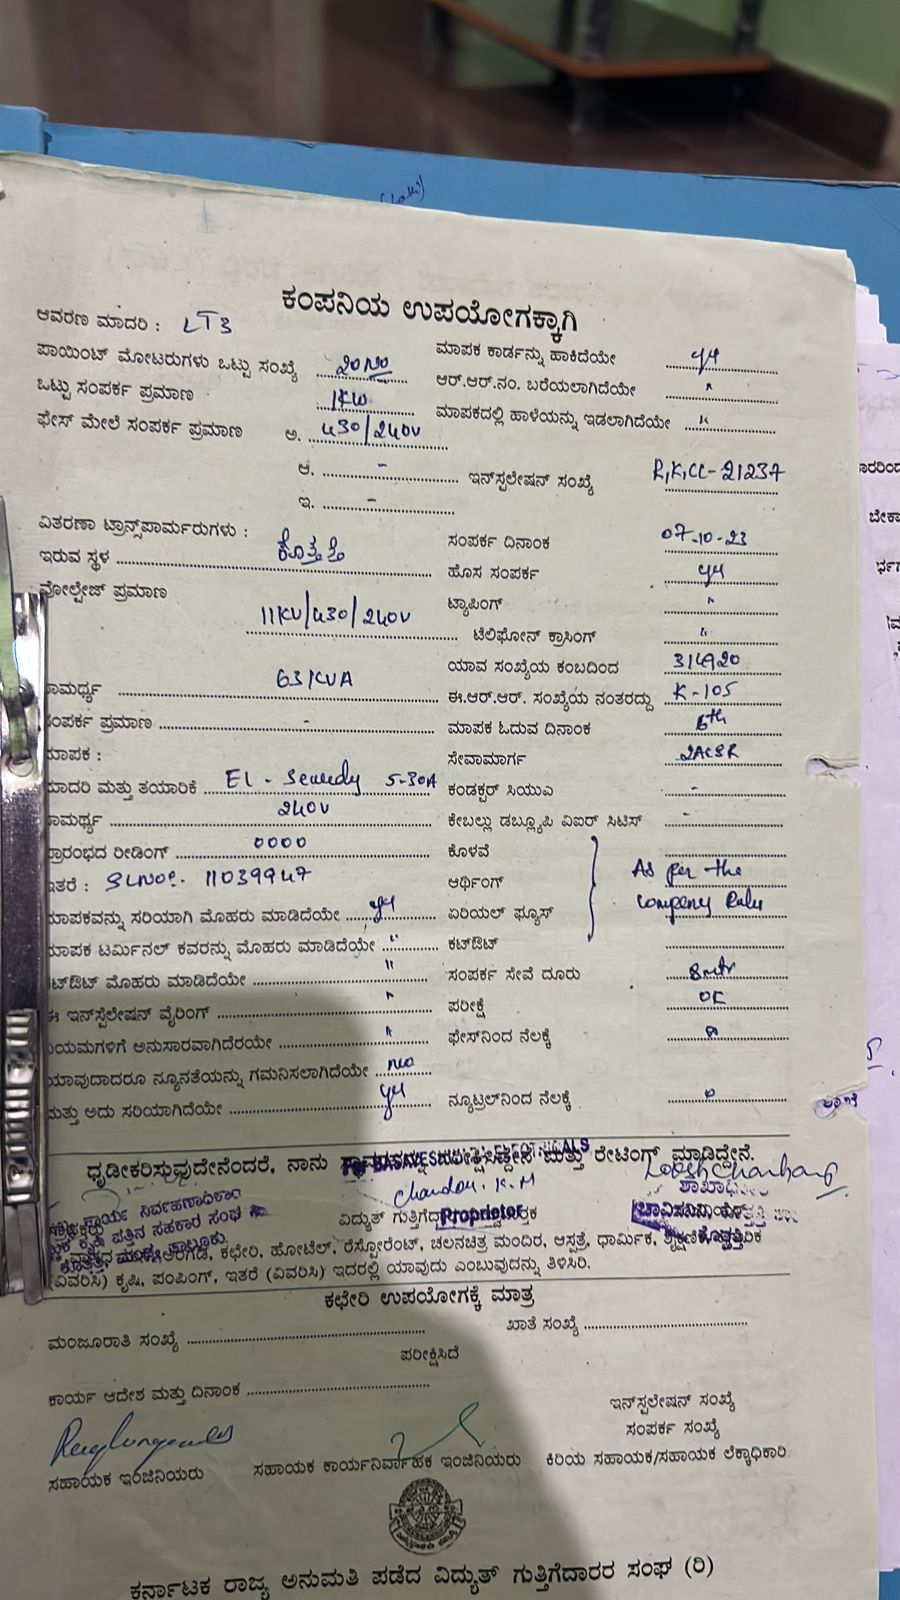 ಕಂಪನಿಯ ಉಪಯೋಗಕ್ಕಾಗಿ
ಆವರಣ ಮಾದರಿ : LT3
ಪಾಯಿಂಟ್ ಮೋಟರುಗಳು ಒಟ್ಟು ಸಂಖ್ಯೆ 20 No
ಒಟ್ಟು ಸಂಪರ್ಕ ಪ್ರಮಾಣ 1KW
ಫೇಸ್ ಮೇಲೆ ಸಂಪರ್ಕ ಪ್ರಮಾಣ ಅ. 430/240V
ಆ. -
ಇ. -
ವಿತರಣಾ ಟ್ರಾನ್ಸ್‌ಪಾರ್ಮರುಗಳು :
ಇರುವ ಸ್ಥಳ ಕೊತ್ತತ್ತಿ
ವೋಲ್ಟೇಜ್ ಪ್ರಮಾಣ
11KV/430/240V
ಾಮರ್ಥ್ಯ 63KVA
ಸಂಪರ್ಕ ಪ್ರಮಾಣ -
ಮಾಪಕ :
ಮಾದರಿ ಮತ್ತು ತಯಾರಿಕೆ EL - 5-30A
ಾಮರ್ಥ್ಯ 240V
ಪ್ರಾರಂಭದ ರೀಡಿಂಗ್ 0000
ಇತರೆ : SLNO:- 11039947
ಮಾಪಕವನ್ನು ಸರಿಯಾಗಿ ಮೊಹರು ಮಾಡಿದೆಯೇ yes
ಮಾಪಕ ಟರ್ಮಿನಲ್ ಕವರನ್ನು ಮೊಹರು ಮಾಡಿದೆಯೇ "
ಕಟ್‌ಔಟ್ ಮೊಹರು ಮಾಡಿದೆಯೇ "
ಈ ಇನ್‌ಸ್ಟಲೇಷನ್ ವೈರಿಂಗ್ "
ನಿಯಮಗಳಿಗೆ ಅನುಸಾರವಾಗಿದೆರಯೇ "
ಯಾವುದಾದರೂ ನ್ಯೂನತೆಯನ್ನು ಗಮನಿಸಲಾಗಿದೆಯೇ no
ಮತ್ತು ಅದು ಸರಿಯಾಗಿದೆಯೇ yes
ಮಾಪಕ ಕಾರ್ಡನ್ನು ಹಾಕಿದೆಯೇ yes
ಆರ್.ಆರ್.ನಂ. ಬರೆಯಲಾಗಿದೆಯೇ "
ಮಾಪಕದಲ್ಲಿ ಹಾಳೆಯನ್ನು ಇಡಲಾಗಿದೆಯೇ "
ಇನ್‌ಸ್ಟಲೇಷನ್ ಸಂಖ್ಯೆ R,K,CC-21237
ಸಂಪರ್ಕ ದಿನಾಂಕ 07-10-23
ಹೊಸ ಸಂಪರ್ಕ yes
ಟ್ಯಾಪಿಂಗ್ "
ಟೆಲಿಫೋನ್ ಕ್ರಾಸಿಂಗ್ "
ಯಾವ ಸಂಖ್ಯೆಯ ಕಂಬದಿಂದ 314920
ಈ.ಆರ್.ಆರ್. ಸಂಖ್ಯೆಯ ನಂತರದ್ದು K-105
ಮಾಪಕ ಓದುವ ದಿನಾಂಕ 6th
ಸೇವಾಮಾರ್ಗ 2ACSR
ಕಂಡಕ್ಟರ್ ಸಿಯುಎ -
ಕೇಬಲ್ಲು ಡಬ್ಲ್ಯೂಪಿ ವಿಐರ್ ಸಿಟಿಸ್ -
ಕೊಳವೆ
ಆರ್ಥಿಂಗ್ As per the
ಏರಿಯಲ್ ಫ್ಯೂಸ್ company Rules
ಕಟ್‌ಔಟ್
ಸಂಪರ್ಕ ಸೇವೆ ದೂರು 8mtr
ಪರೀಕ್ಷೆ OK
ಫೇಸ್‌ನಿಂದ ನೆಲಕ್ಕೆ
ನ್ಯೂಟ್ರಲ್‌ನಿಂದ ನೆಲಕ್ಕೆ 0
ಧೃಡೀಕರಿಸ್ತುವುದೇನೆಂದರೆ, ನಾನು ಮತ್ತು ರೇಟಿಂಗ್ ಮಾಡಿದ್ದೇನೆ.
BASAVESHWARA ELECTRICALS
Chandan. K.M
ವಿದ್ಯುತ್ Proprietor
ಕಛೇರಿ, ಹೋಟೆಲ್, ರೆಸ್ಟೋರೆಂಟ್, ಚಲನಚಿತ್ರ ಮಂದಿರ, ಆಸ್ಪತ್ರೆ, ಧಾರ್ಮಿಕ,
(ವಿವರಿಸಿ) ಕೃಷಿ, ಪಂಪಿಂಗ್, ಇತರೆ (ವಿವರಿಸಿ) ಇದರಲ್ಲಿ ಯಾವುದು ಎಂಬುವುದನ್ನು ತಿಳಿಸಿರಿ.
ಕಛೇರಿ ಉಪಯೋಗಕ್ಕೆ ಮಾತ್ರ
ಮಂಜೂರಾತಿ ಸಂಖ್ಯೆ ಖಾತೆ ಸಂಖ್ಯೆ
ಪರೀಕ್ಷಿಸಿದೆ
ಕಾರ್ಯ ಆದೇಶ ಮತ್ತು ದಿನಾಂಕ
ಇನ್‌ಸ್ಟಲೇಷನ್ ಸಂಖ್ಯೆ
ಸಂಪರ್ಕ ಸಂಖ್ಯೆ
ಸಹಾಯಕ ಇಂಜಿನಿಯರು ಸಹಾಯಕ ಕಾರ್ಯನಿರ್ವಾಹಕ ಇಂಜಿನಿಯರು ಕಿರಿಯ ಸಹಾಯಕ/ಸಹಾಯಕ ಲೆಕ್ಕಾಧಿಕಾರಿ
ಕರ್ನಾಟಕ ರಾಜ್ಯ ಅನುಮತಿ ಪಡೆದ ವಿದ್ಯುತ್ ಗುತ್ತಿಗೆದಾರರ ಸಂಘ (ರಿ)